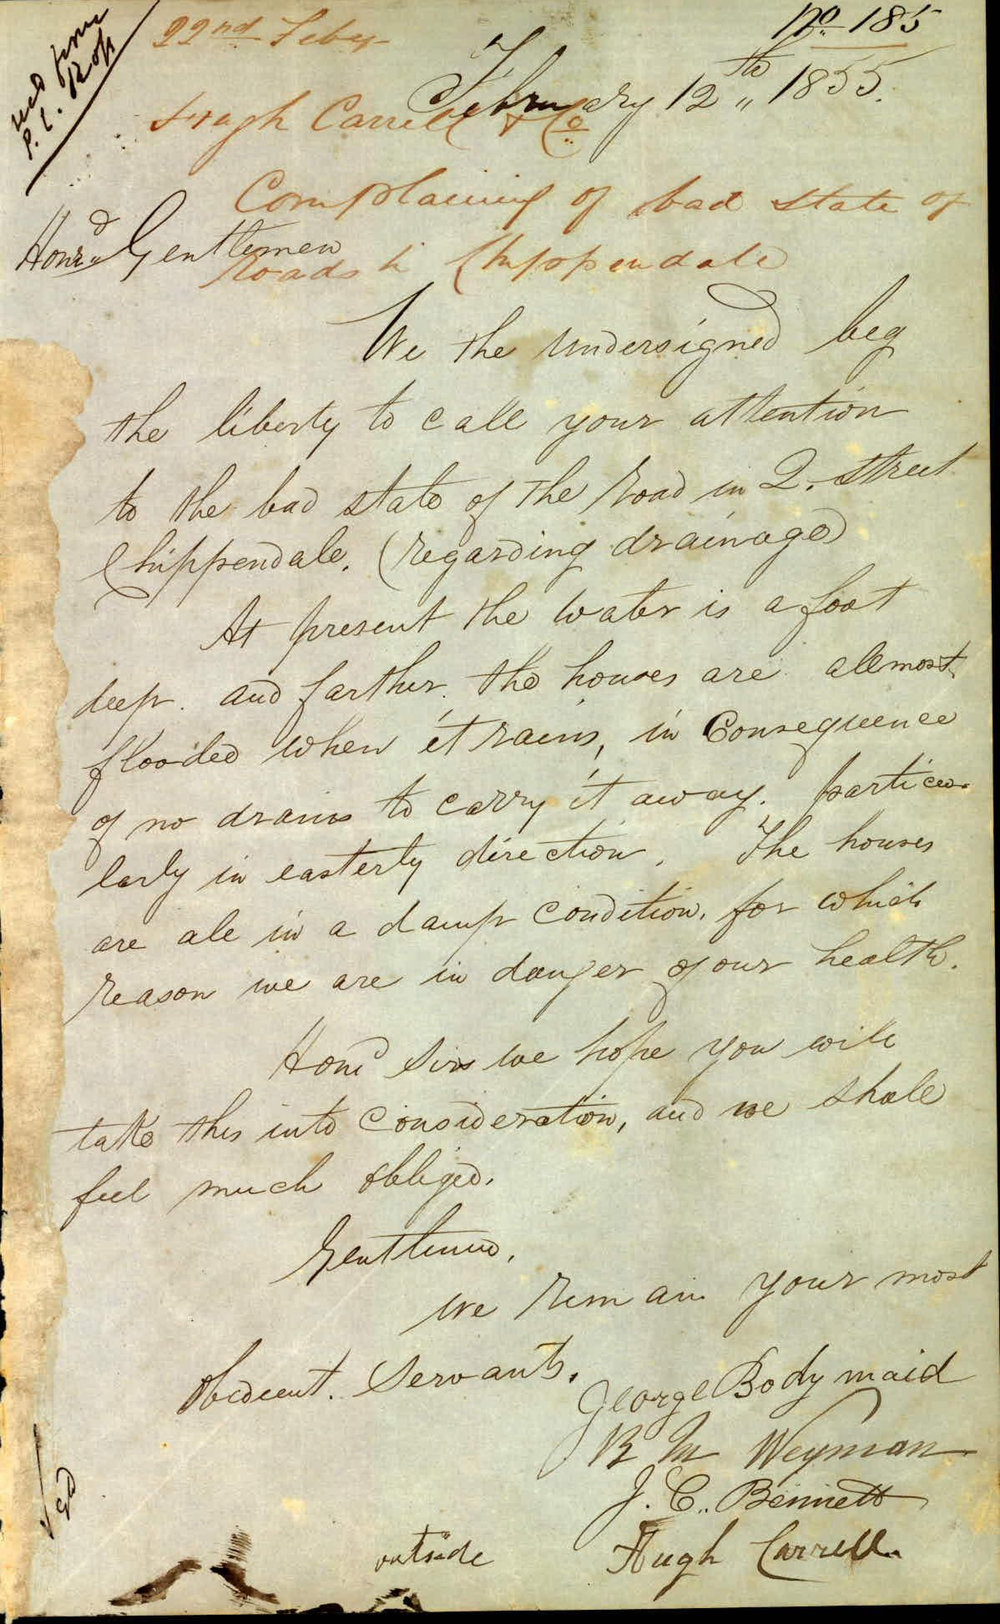 No. 185
22nd Feby
February 12th 1855.
Hugh Carrell & Co
Complaining of bad state of
Roads in Chippendale
Honrd Gentlemen
We the undersigned beg
the liberty to call your attention
to the bad state of the road in Q. Street
Chippendale. (regarding drainage)
At present the water is a foot
deep. and farther. the houses are allmost
flooded when it rains, in Consequence
of no drains to carry it away. particu-
larly in easterly direction. The houses
are all in a damp Condition. for which
reason we are in danger of our health.
Hond Sirs we hope you will
take this into Consideration, and we shall
feel much obliged.
Gentlemen,
we remain your most
Obedient. Servants.
George Body maid
B M Weyman
J. C. Bennett
Hugh Carrell.
outside